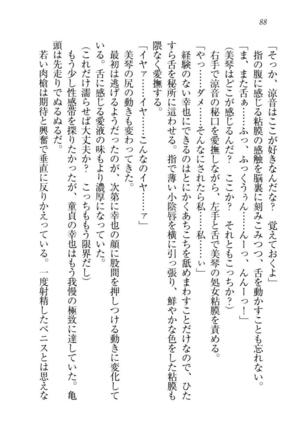 88
「そっか、涼音はここが好きなんだな？　覚えておくよ」
指の腹に感じる粘膜の感触を脳裏に刻みこみつつ、舌を動かすことも忘れない。
「ま、また舌ぁ……ふっ、ふっくうぅん……んーっ、んんーっ！」
（美琴はどこが感じるんだ？　ここか？　それともこっちか？）
右手で涼音の秘口を愛撫しながら、左手と舌で美琴の処女粘膜を責める。
「やっ……ダメ……そんなにされたら私……私……ぃ」
経験のない幸也にできるのはとにかくあちこちを舐めまわすことだけなので、ひた
すら舌を秘所に這わせる。指で薄い小陰唇を横に引っ張り、鮮やかな色をした粘膜も
隈なく愛撫していく。
「イヤァ……イヤ……こんなのイヤ……ァ」
美琴の尻の動きも変わってきた。
最初は逃げるようだったのが、次第に幸也の顔に股間を押しつける動きに変化して
いる。舌に感じる愛液の味もより濃厚になっていた。
（これだけ濡らせば大丈夫か？　こっちももう限界だし）
もう少し性感帯を探りたかったが、童貞の幸也はもう我慢の極致に達していた。亀
頭は先走りでぬるぬるだ。
若い肉槍は期待と興奮で垂直に反りかえっている。一度射精したペニスとは思えな